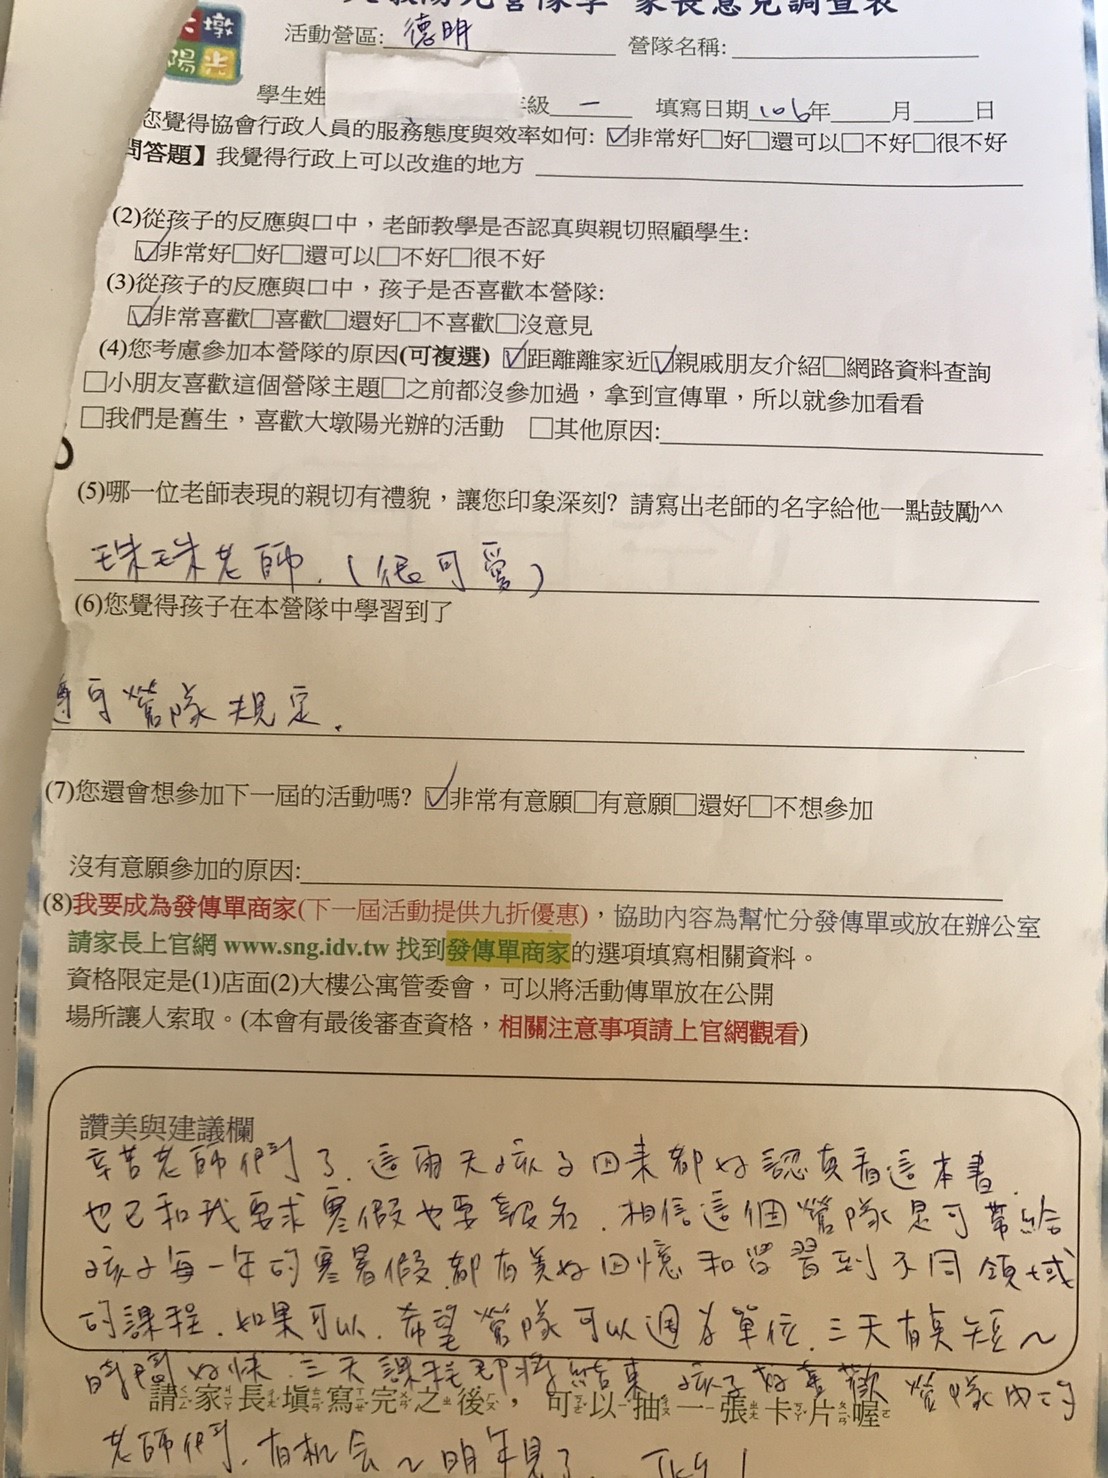 大墩
陽光
陽光營隊季 家長意見調查表
活動營區: 德明 營隊名稱:
學生姓 年級 一 填寫日期 106年 月 日
您覺得協會行政人員的服務態度與效率如何: ☑非常好□好□還可以□不好□很不好
問答題】我覺得行政上可以改進的地方
(2)從孩子的反應與口中，老師教學是否認真與親切照顧學生:
☑非常好□好□還可以□不好□很不好
(3)從孩子的反應與口中，孩子是否喜歡本營隊:
☑非常喜歡□喜歡□還好□不喜歡□沒意見
(4)您考慮參加本營隊的原因(可複選) ☑距離離家近☑親戚朋友介紹□網路資料查詢
□小朋友喜歡這個營隊主題□之前都沒參加過，拿到宣傳單，所以就參加看看
□我們是舊生，喜歡大墩陽光辦的活動 □其他原因:
(5)哪一位老師表現的親切有禮貌，讓您印象深刻? 請寫出老師的名字給他一點鼓勵^^
珠珠老師.(很可愛)
(6)您覺得孩子在本營隊中學習到了
遵守營隊規定.
(7)您還會想參加下一屆的活動嗎? ☑非常有意願□有意願□還好□不想參加
沒有意願參加的原因:
(8)我要成為發傳單商家(下一屆活動提供九折優惠)，協助內容為幫忙分發傳單或放在辦公室
請家長上官網 www.sng.idv.tw 找到發傳單商家的選項填寫相關資料。
資格限定是(1)店面(2)大樓公寓管委會，可以將活動傳單放在公開
場所讓人索取。(本會有最後審查資格，相關注意事項請上官網觀看)
讚美與建議欄
辛苦老師們了.這兩天孩子回來都好認真看這本書.
也已和我要求寒假也要報名.相信這個營隊是可帶給
孩子每一年的寒暑假都有美好回憶和學習到不同領域
的課程.如果可以.希望營隊可以週為單位.三天有點短~
時間好快.三天課程即將結束 孩子好喜歡 營隊的
請家長填寫完之後，可以抽一張卡片喔
老師們.有机会~明年見了.